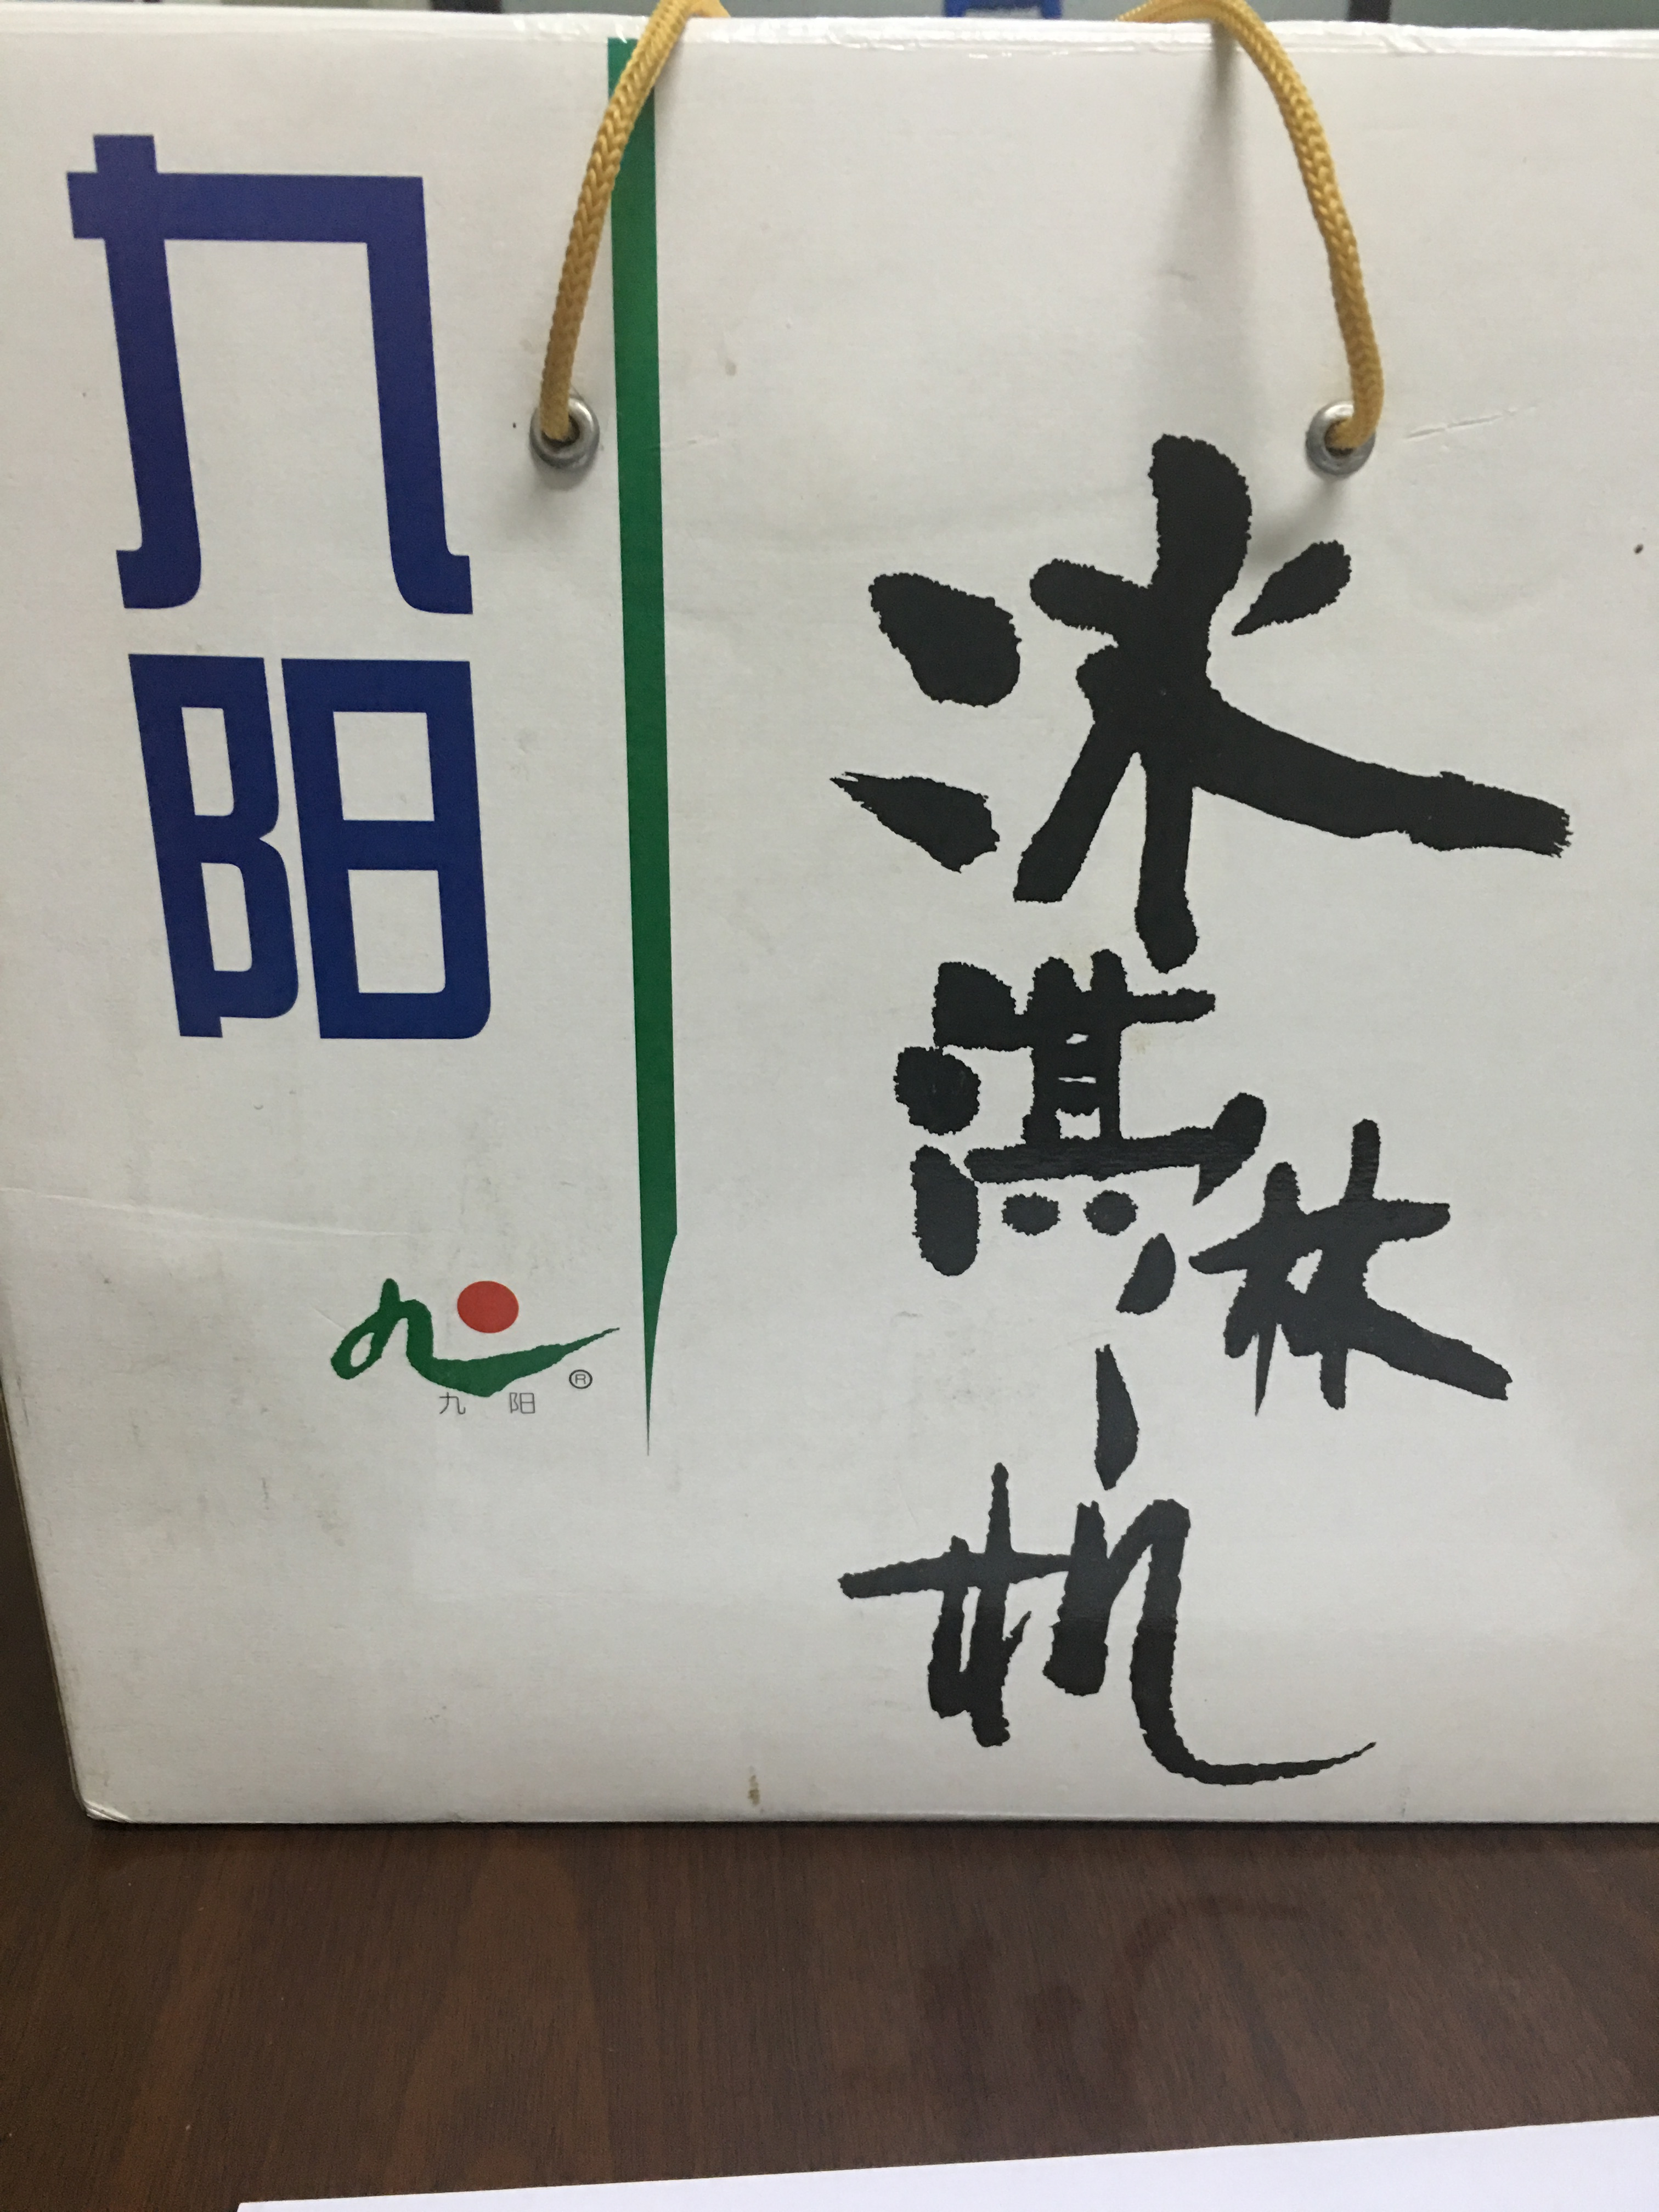 九阳
九 阳
®
冰淇淋机